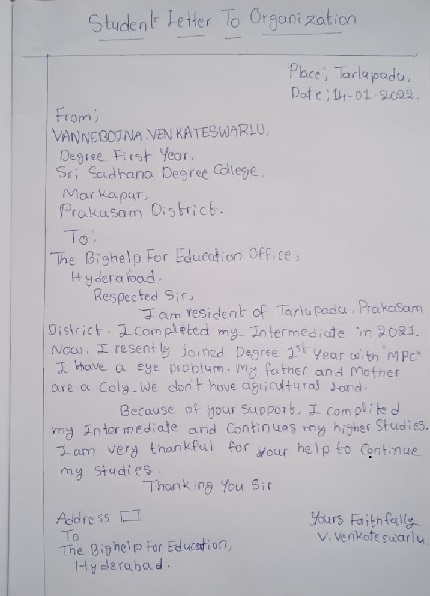 Student Letter To Organization
Place; Tarlupadu.
Date; 14-01-2022.
From;
VANNEBOINA. VENKATESWARLU,
Degree First Year,
Sri Sadhana Degree College,
Markapur,
Prakasam District.
To:
The Bighelp For Education Office,
Hyderabad.
Respected Sir,
I am resident of Tarlupadu, Prakasam
District. I completed my Intermediate in 2021.
Now, I resently joined Degree 1st Year with "MPC"
I have a eye problum. My father and Mother
are a Coly. We don't have agricultural land.
Because of your support, I complited
my Intormediate and Continues my higher Studies.
I am very thankful for your help to Continue
my studies.
Thanking You Sir
Address
Yours Faithfully
To
V. Venkateswarlu
The Bighelp For Education,
Hyderabad.